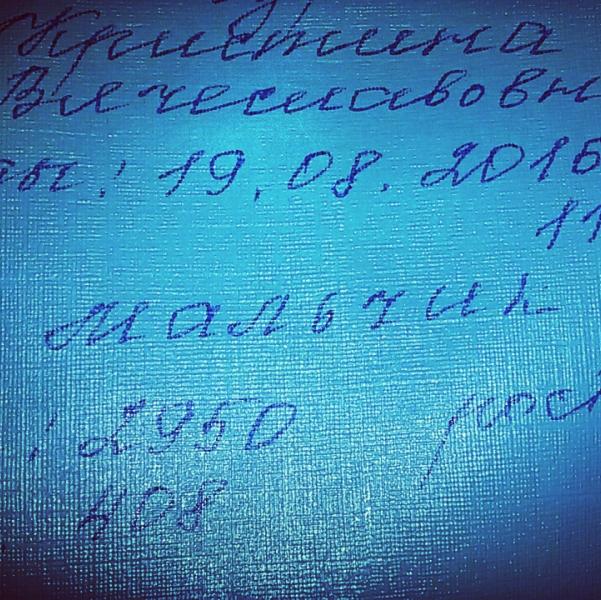 Кристина
Вячеславовн
ты: 19.08.2015
11
мальчик
: 2950 рост
№ 408